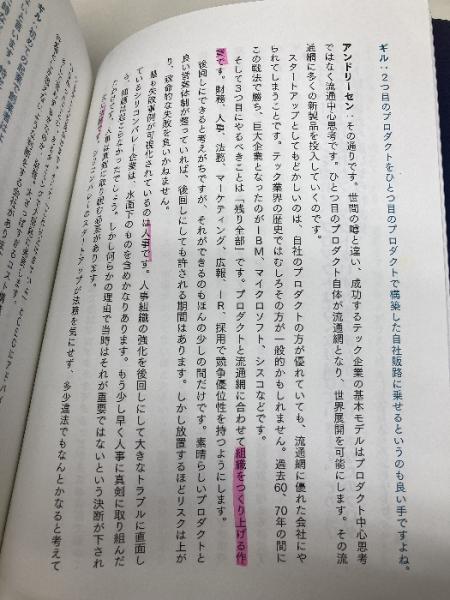 ギル:2つ目のプロダクトをひとつ目のプロダクトで構築した自社販路に乗せるというのも良い手ですよね。
アンドリーセン:その通りです。世間の噂と違い、成功するテック企業の基本モデルはプロダクト中心思考
ではなく流通中心思考です。ひとつ目のプロダクト自体が流通網となり、世界展開を可能にします。その流
通網に多くの新製品を投入していくのです。
スタートアップとしてもどかしいのは、自社のプロダクトの方が優れていても、流通網に優れた会社にや
られてしまうことです。テック業界の歴史ではむしろその方が一般的かもしれません。過去60、70年の間に
この戦法で勝ち、巨大企業となったのがIBM、マイクロソフト、シスコなどです。
そして3つ目にやるべきことは「残り全部」です。プロダクトと流通網に合わせて組織をつくり上げる作
業です。財務、人事、法務、マーケティング、広報、IR、採用で競争優位性を持つようにします。
後回しにできると考えがちですが、それができるのもほんの少しの間だけです。素晴らしいプロダクトと
良い営業体制が整っていれば、後回しにしても許される期間はあります。しかし放置するほどリスクは上が
り、致命的な失敗を負いかねません。
最も失敗事例が可視化されているのは人事です。人事組織の強化を後回しにして大きなトラブルに直面し
ているシリコンバレー企業は、水面下のものを含めかなりあります。もう少し早く人事に真剣に取り組んだ
しょう。しかし何らかの理由で当時はそれが重要ではないという決断が下され
スタートアップが法務を気にせず、多少違法でもなんとかなると考えて